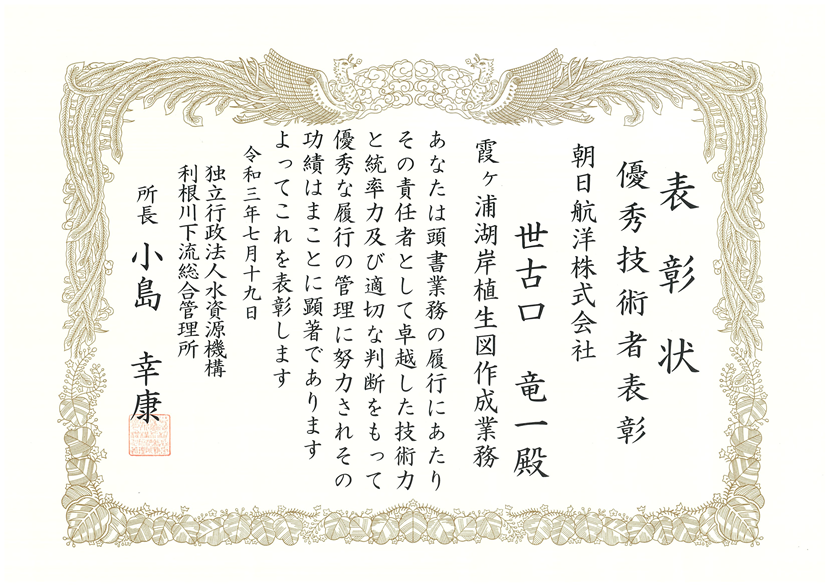 表彰状
優秀技術者表彰
朝日航洋株式会社
世古口 竜一殿
霞ヶ浦湖岸植生図作成業務
あなたは頭書業務の履行にあたり
その責任者として卓越した技術力
と統率力及び適切な判断をもって
優秀な履行の管理に努力されその
功績はまことに顕著であります
よってこれを表彰します
令和三年七月十九日
独立行政法人水資源機構
利根川下流総合管理所
所長 小島 幸康